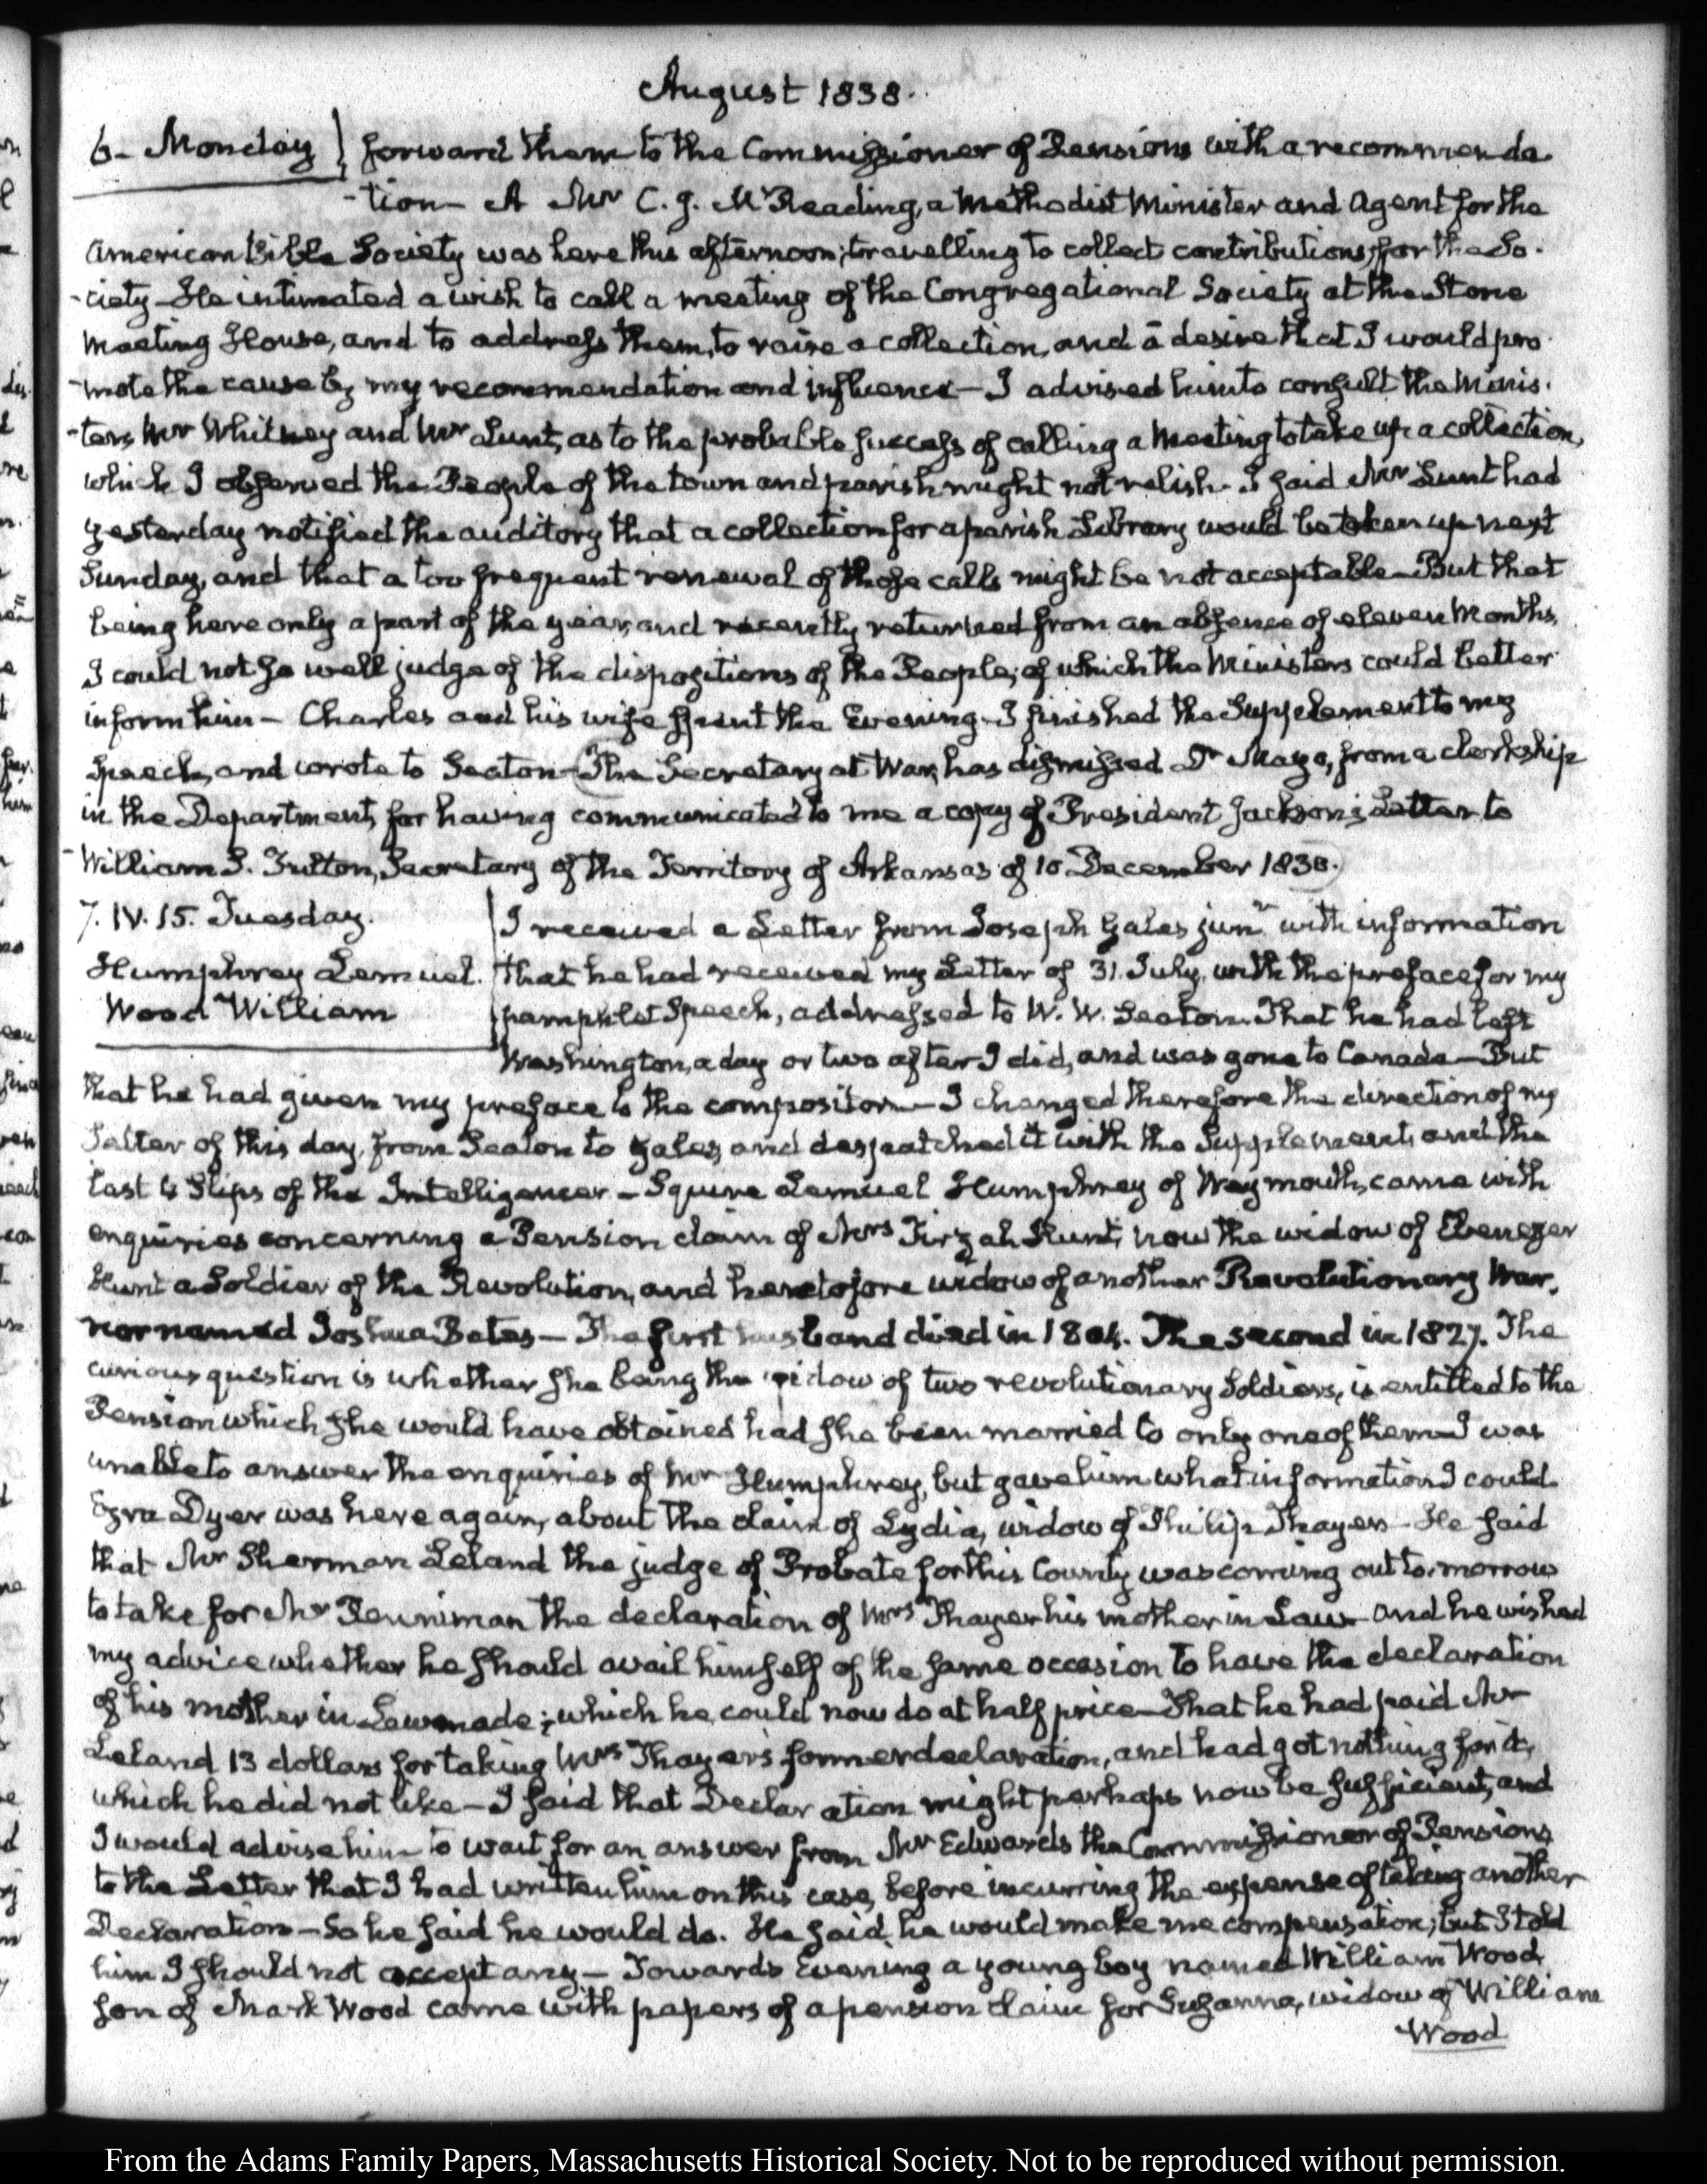 August 1838.
6- Monday } forward them to the Commissioner of Pensions with a recommenda
-tion- A Mr C. J. McReading, a Methodist Minister and Agent for the
American Bible Society was here this afternoon; travelling to collect contributions, for the So-
-ciety- He intimated a wish to call a meeting of the Congregational Society at the Stone
Meeting House, and to address them, to raise a collection, and a desire that I would pro-
-mote the cause by my recommendation and influence- I advised him to consult the Minis-
-ters Mr Whitney and Mr Lunt, as to the probable success of calling a Meeting to take up a collection,
which I observed the People of the town and parish might not relish. I said Mr Lunt had
yesterday notified the auditory that a collection for a parish Library would be taken up next
Sunday, and that a too frequent renewal of those calls might be not acceptable- But that
being here only a part of the year, and recently returned from an absence of eleven Months,
I could not so well judge of the dispositions of the People; of which the Ministers could better
inform him- Charles and his wife spent the Evening- I finished the Supplement to my
Speech, and wrote to Seaton- (The Secretary at War, has dismissed Dr Mayo, from a clerkship
in the Department, for having communicated to me a copy of President Jackson's Letter to
-William S. Fulton, Secretary of the Territory of Arkansas of 10 December 1830.)
7. IV. 15. Tuesday. I received a Letter from Joseph Gales junr with information
Humphrey Lemuel. that he had received my Letter of 31. July, with the preface for my
Wood William pamphlet Speech, addressed to W. W. Seaton. That he had left
Washington, a day or two after I did, and was gone to Canada- But
that he had given my preface to the compositor- I changed therefore the direction of my
Letter of this day, from Seaton to Gales, and despatched it with the Supplement, and the
last 4 Slips of the Intelligencer- Squire Lemuel Humphrey of Weymouth, came with
enquiries concerning a Pension claim of Mrs Tirzah Hunt, now the widow of Ebenezer
Hunt a Soldier of the Revolution, and heretofore widow of another Revolutionary War-
rior named Joshua Bates- The first husband died in 1804. The second in 1827. The
curious question is whether she being the widow of two revolutionary Soldiers, is entitled to the
Pension which she would have obtained had she been married to only one of them- I was
unable to answer the enquiries of Mr Humphrey, but gave him what information I could
Ezra Dyer was here again, about the claim of Lydia, widow of Philip Thayer- He said
that Mr Sherman Leland the judge of Probate for this County was coming out to-morrow
to take for Mr Penniman the declaration of Mrs Thayer his mother in Law- and he wished
my advice whether he should avail himself of the same occasion to have the declaration
of his mother in Law made; which he could now do at half price- That he had paid Mr
Leland 13 dollars for taking Mrs Thayer's former declaration, and had got nothing for it,
which he did not like- I said that Declaration might perhaps now be sufficient, and
I would advise him to wait for an answer from Mr Edwards the Commissioner of Pensions
to the Letter that I had written him on this case, before incurring the expense of taking another
Declaration- So he said he would do. He said he would make me compensation; but I told
him I should not accept any- Towards Evening a young boy named William Wood
son of Mark Wood came with papers of a pension claim for Suzanna, widow of William
Wood
From the Adams Family Papers, Massachusetts Historical Society. Not to be reproduced without permission.